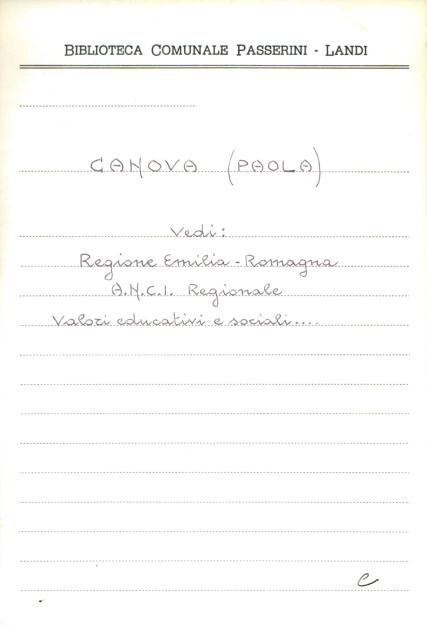 BIBLIOTECA COMUNALE PASSERINI - LANDI
CANOVA (PAOLA)
Vedi:
Regione Emilia - Romagna
A.N.C.I. Regionale
Valori educativi e sociali....
C